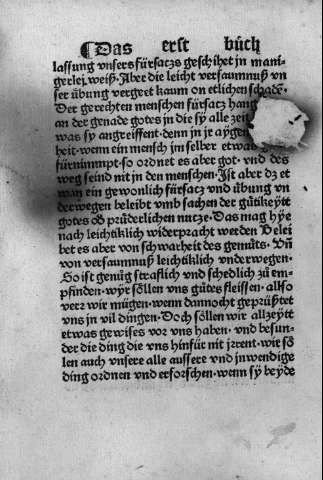 Das erst büch
lassung vnsers fürsaczs geschihet in mani-
gerlei weiß. Aber die leicht versaumnuß vn
ser übung vergeet kaum on etlichen schadē.
Der gerechten menschen fürsatz hang
an der genade gotes in die sy alle zeit
was sy angreiffent. denn in jr aygen
heit. wenn ein mensch jm selber etwas
fürnimmpt. so ordnet es aber got. vnd des
weg seind nit in den menschen. Ist aber dz et
wan ein gewonlich fürsatz vnd übung vn
derwegen beleibt vmb sachen der gütikeytt
gotes ob prüderlichen nutze. Das mag hye
nach leichtiklich widerpracht werden Belei
bet es aber von schwarheit des gemüts. Vñ
von versaumnuß leichtiklich vnderwegen.
So ist genüg straflich vnd schedlich zü em-
pfinden. wyr söllen vns gütes fleissen. allso
verr wir mügen. wenn dannocht geprüsttet
vns in vil dingen. Doch söllen wir allzeytt
etwas gewises vor vns haben. vnd besun-
der die ding die vns hinfür nit jrrent. wir sö
len auch vnsere alle aussere vnd jnwendige
ding ordnen vnd erforschen. wenn sy beyde